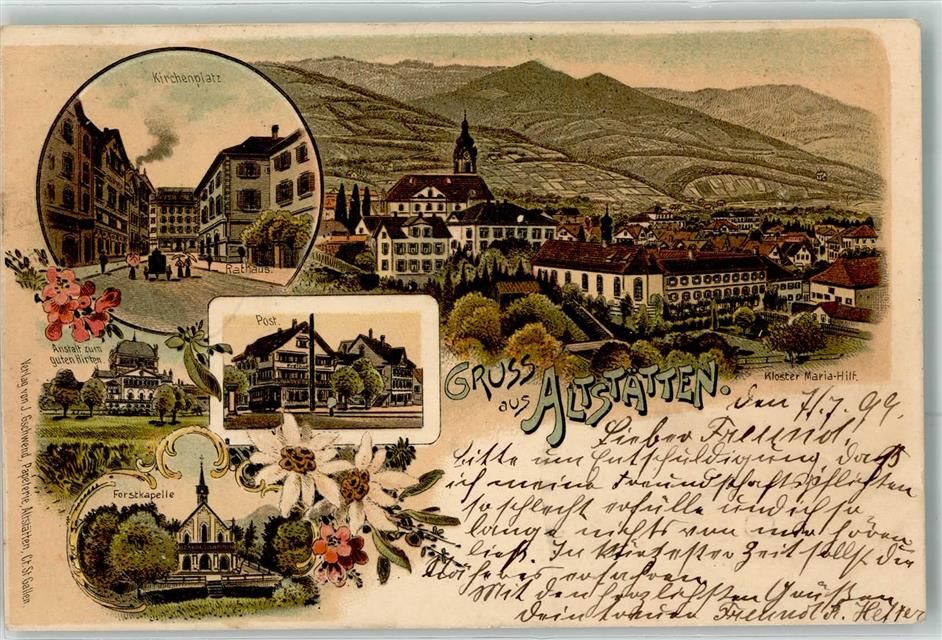 Kirchenplatz
Rathaus.
Anstalt zum
guten Hirten
Post.
Forstkapelle
Kloster Maria-Hilf.
GRUSS
aus
ALTSTÄTTEN.
Verlag von J. Gschwend, Papeterie, Altstätten, Ct. St. Gallen
den 7./7. 99.
Lieber Freund!
bitte um Entschuldigung dass
ich meine Freundschaftspflichten
so schlecht erfülle und ich so
lange nichts von mir hören
ließ. In kürzester Zeit sollst du
Näheres erfahren
Mit den herzlichsten Grüßen
Dein treuer Freund R.